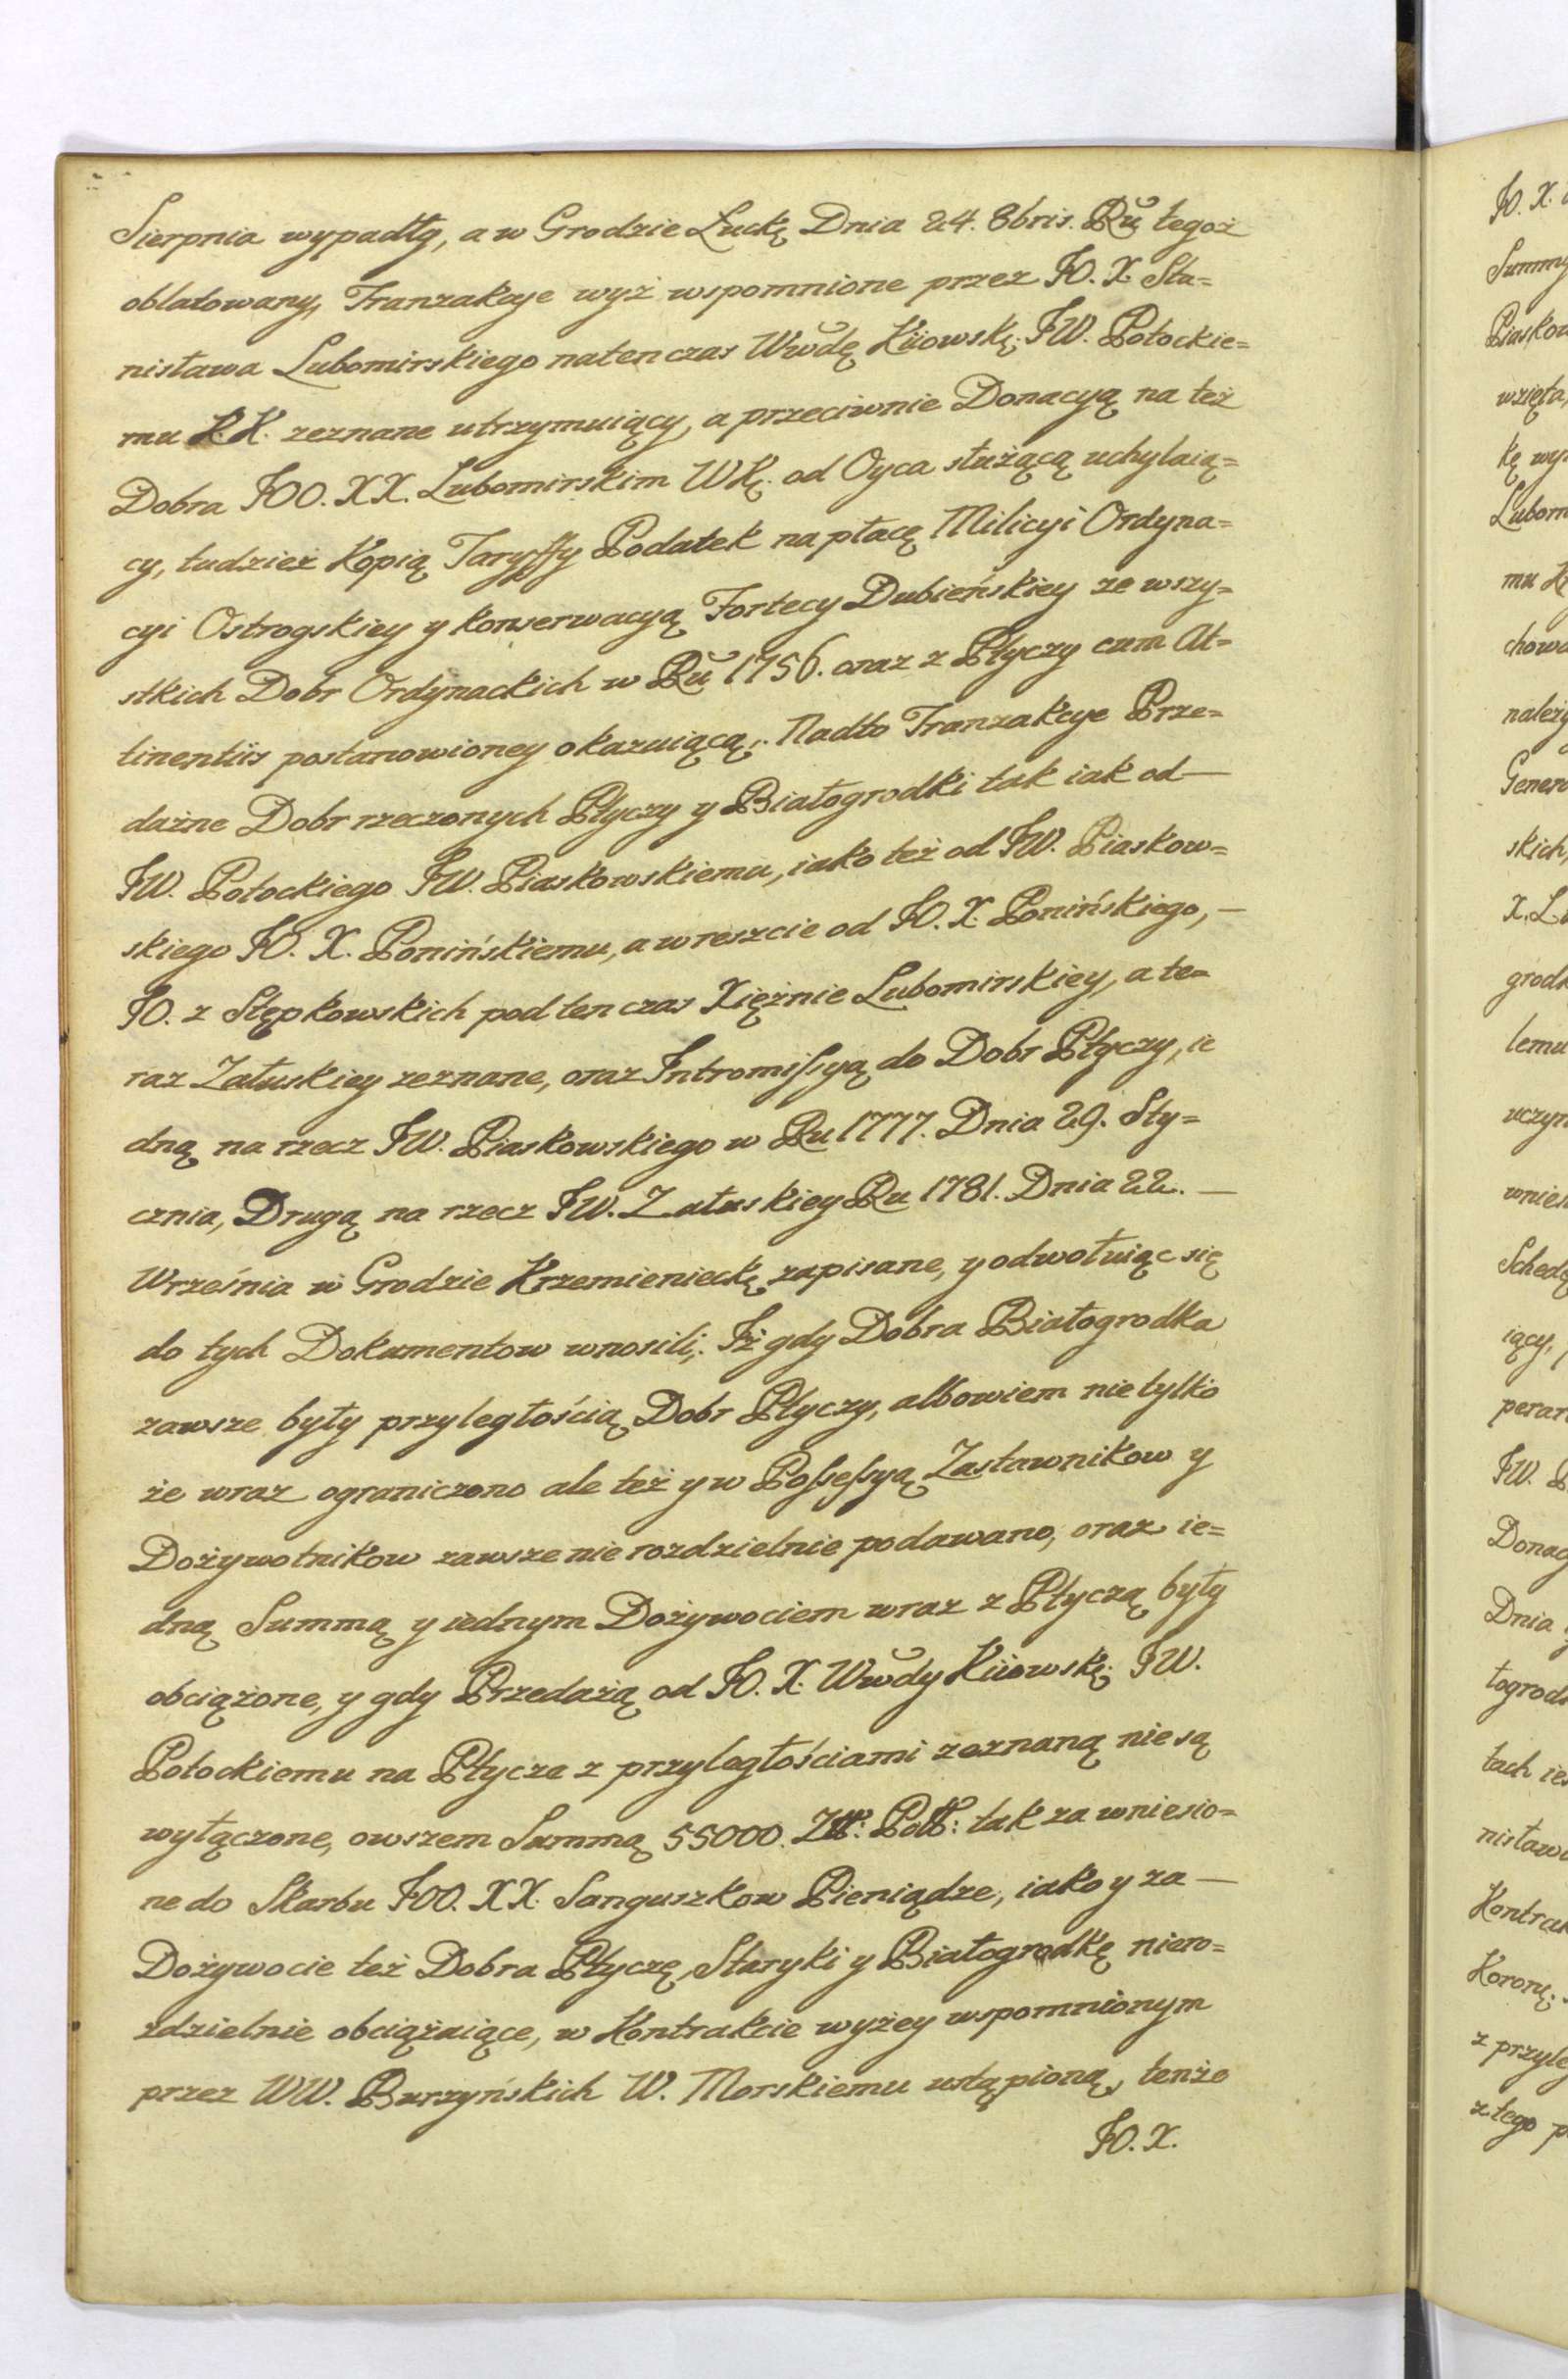 Sierpnia wypadły, a w Grodzie Łuckĕ Dnia 24. 8bris. Rŭ tegoż
oblatowany, Tranzakcye wyż wspomnione przez JO. X. Sta=
nisława Lubomirskiego natenczas Wwŏdę Kiiowskę. JW. Potockie=
mu K.K. zeznane utrzymuiący, a przeciwnie Donacyą na też
Dobra JOO. XX. Lubomirskim WKę. od Oyca służącą uchylaią=
cy, tudzież Kopią Taryffy Podatek na płacę Milicyi Ordyna=
cyi Ostrogskiey y konserwacyą Fortecy Dubieńskiey ze wszy=
stkich Dobr Ordynackich w Rŭ 1756. oraz z Płyczy cum At=
tinentiis postanowioney okazuiącą,. Nadto Tranzakcye Prze=
dażne Dobr rzeczonych Płyczy y Białogrodki tak iak od —
JW. Potockiego JW. Piaskowskiemu, iako też od JW. Piaskow=
skiego JO. X. Ponińskiemu, a wreszcie od JO. X. Ponińskiego, —
JO. z Stępkowskich podtenczas Xiężnie Lubomirskiey, a te=
raz Załuskiey zeznane, oraz Intromissyą do Dobr Płyczy, ie
dną na rzecz JW. Piaskowskiego w Ru 1777. Dnia 29. Sty=
cznia, Drugą na rzecz JW. Załuskiey Ru 1781. Dnia 22. —
Września w Grodzie Krzemienieckę zapisane, y odwołuiąc się
do tych Dokumentow wnosili;. Iż gdy Dobra Białogrodka
zawsze były przyległością Dobr Płyczy, albowiem nie tylko
że wraz ograniczono ale też y w Possessyą Zastawnikow y
Dożywotnikow zawsze nierozdzielnie podawano, oraz ie=
dną Summą y iednym Dożywociem wraz z Płyczą były
obciążone, y gdy Przedażą od JO. X. Wwŏdy Kiiowskę. JW.
Potockiemu na Płycze z przyległościami zeznaną nie są
wyłączone, owszem Summą 55000. Złł: Poll: tak za wniesio=
ne do Skarbu JOO. XX. Sanguszkow Pieniądze, iako y za —
Dożywocie też Dobra Płyczę, Staryki y Białogrodkę niero=
zdzielnie obciążaiące, w Kontrakcie wyżey wspomnionym
przez WW. Burzynskich W. Morskiemu ustąpioną, tenże
JO. X.
JO. X.
Summy
Piaskow
wzięta,
kę wy
Lubom
mu K
chowa
należy
Gener
skich,
X. Lu
grodk
lemu
uczyn
wnień
Schedę
iący,
perar
JW. P
Donacy
Dnia
łogrod
tach ies
nisława
Kontrak
Koronę.
z przyle
z tego p